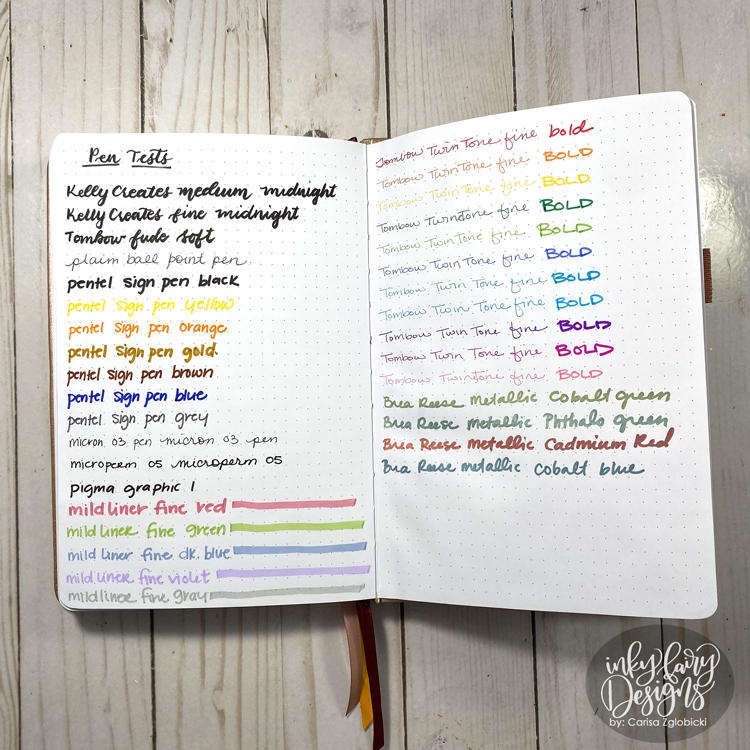 Pen Tests
Kelly Creates medium midnight
Kelly Creates fine midnight
Tombow fude soft
plain ball point pen.
pentel sign pen black
pentel sign pen yellow
pentel sign pen orange
pentel sign pen gold.
pentel sign pen brown
pentel sign pen blue
pentel sign pen grey
micron 03 pen micron 03 pen
microperm 05 microperm 05
pigma graphic 1
mildliner fine red
mildliner fine green
mild liner fine dk. blue
mild liner fine violet
mildliner fine gray
Tombow Twin Tone fine bold
Tombow Twin Tone fine BOLD
Tombow Twin Tone fine BOLD
Tombow Twintone fine BOLD
Tombow Twin Tone fine BOLD
Tombow Twin Tone fine BOLD
Tombow Twin Tone fine BOLD
Tombow Twin Tone fine BOLD
Tombow Twin Tone fine BOLD
Tombow Twin Tone fine BOLD
Tombow Twintone fine BOLD
Brea Reese metallic Cobalt green
Brea Reese metallic Phthalo green
Brea Reese metallic Cadmium Red
Brea Reese metallic cobalt blue
inky fairy
Designs
by: Carisa Zglobicki